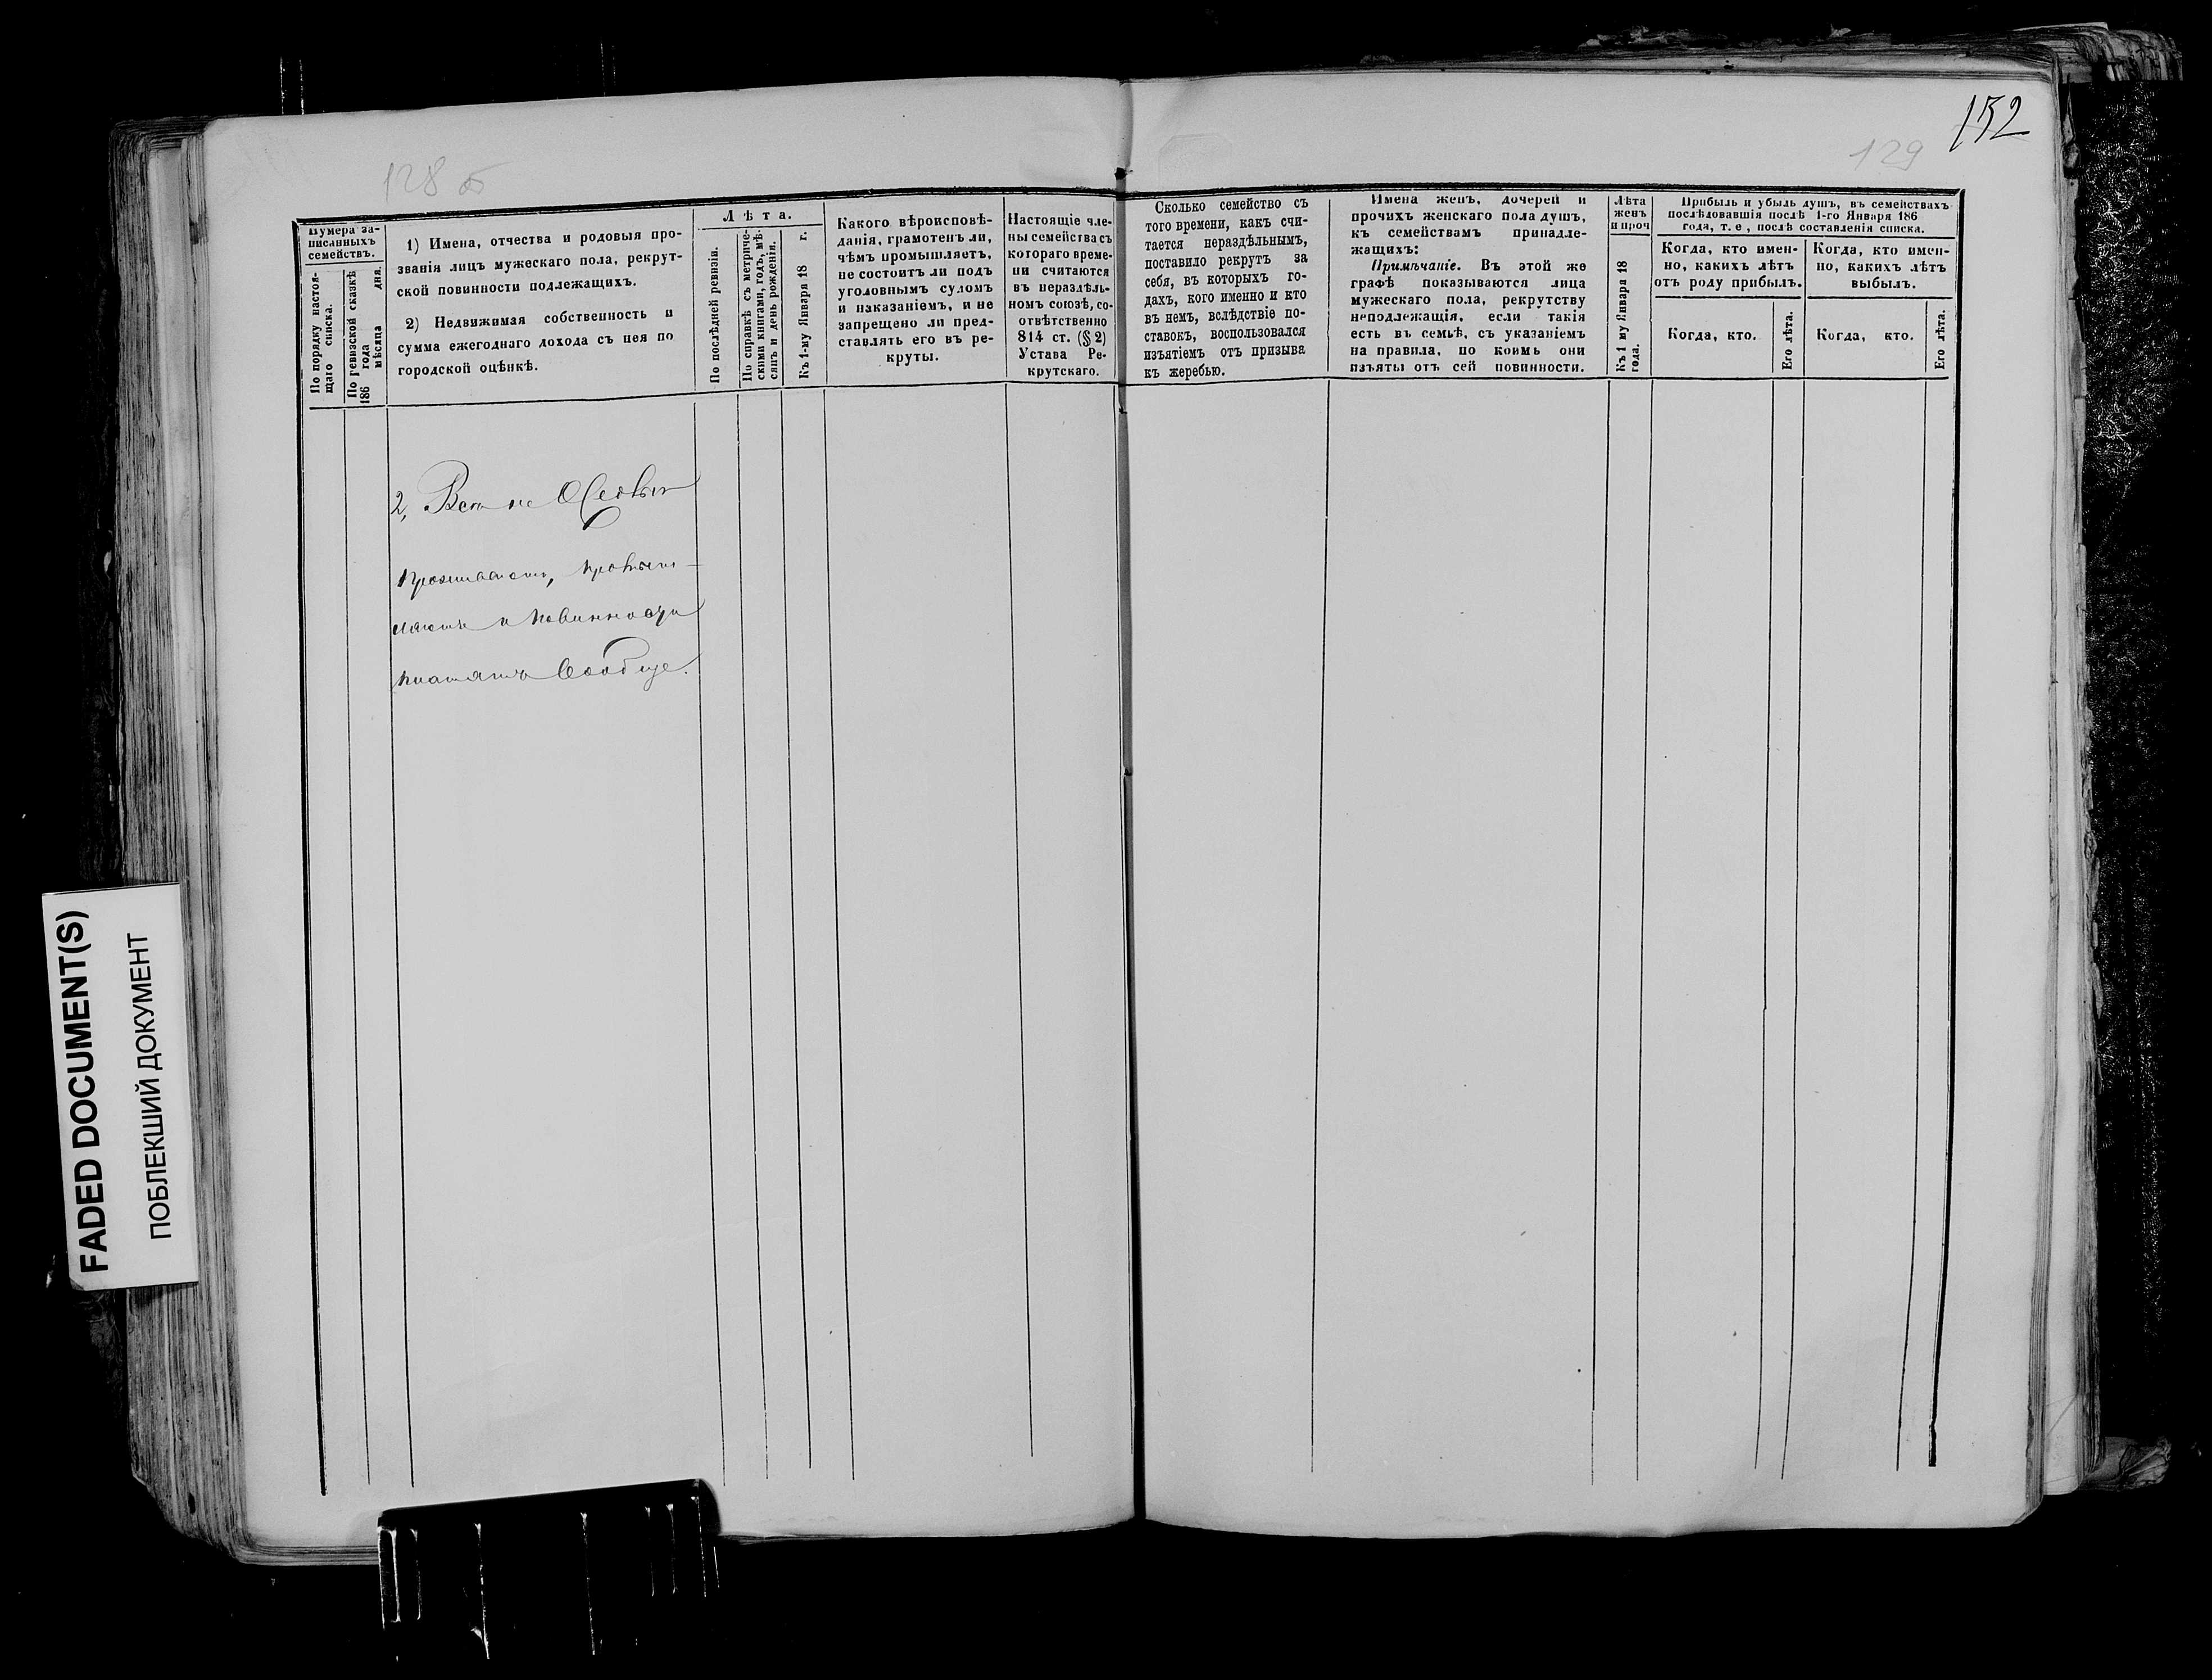 152
128 об
129
Нумера за-
писанныхъ
семействъ.
По порядку настоя-
щаго списка.
По ревизской сказкѣ
186 года мѣсяца дня.
1) Имена, отчества и родовыя про-
званія лицъ мужескаго пола, рекрут-
ской повинности подлежащихъ.
2) Недвижимая собственность и
сумма ежегоднаго дохода съ нея по
городской оцѣнкѣ.
Лѣта.
По послѣдней ревизіи.
По справкѣ съ метриче-
скими книгами, годъ, мѣ-
сяцъ и день рожденія.
Къ 1-му Января 18 г.
Какого вѣроисповѣ-
данія, грамотенъ ли,
чѣмъ промышляетъ,
не состоитъ ли подъ
уголовнымъ судомъ
и наказаніемъ, и не
запрещено ли пред-
ставлять его въ ре-
круты.
Настоящіе чле-
ны семейства съ
котораго време-
ни считаются
въ нераздѣль-
номъ союзѣ, со-
отвѣтственно
814 ст. (§ 2)
Устава Ре-
крутскаго.
Сколько семейство съ
того времени, какъ счи-
тается нераздѣльнымъ,
поставило рекрутъ за
себя, въ которыхъ го-
дахъ, кого именно и кто
въ немъ, вслѣдствіе по-
ставокъ, воспользовался
изъятіемъ отъ призыва
къ жеребью.
Имена женъ, дочерей и
прочихъ женскаго пола душъ,
къ семействамъ принадле-
жащихъ:
Примѣчаніе. Въ этой же
графѣ показываются лица
мужескаго пола, рекрутству
неподлежащія, если такія
есть въ семьѣ, съ указаніемъ
на правила, по коимъ они
изъяты отъ сей повинности.
Лѣта
женъ
и проч
Къ 1 му Января 18
года.
Прибыль и убыль душъ, въ семействахъ
послѣдовавшія послѣ 1-го Января 186
года, т. е, послѣ составленія списка.
Когда, кто имен-
но, какихъ лѣтъ
отъ роду прибылъ.
Когда, кто имен-
но, какихъ лѣтъ
выбылъ.
Когда, кто.
Его лѣта.
Когда, кто.
Его лѣта.
2, не
проживаютъ,
и повинности
платятъ сообща.
FADED DOCUMENT(S)
ПОБЛЕКШИЙ ДОКУМЕНТ